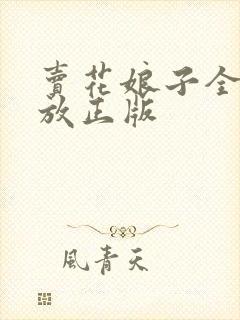 賣花娘子全
放正版
風青天